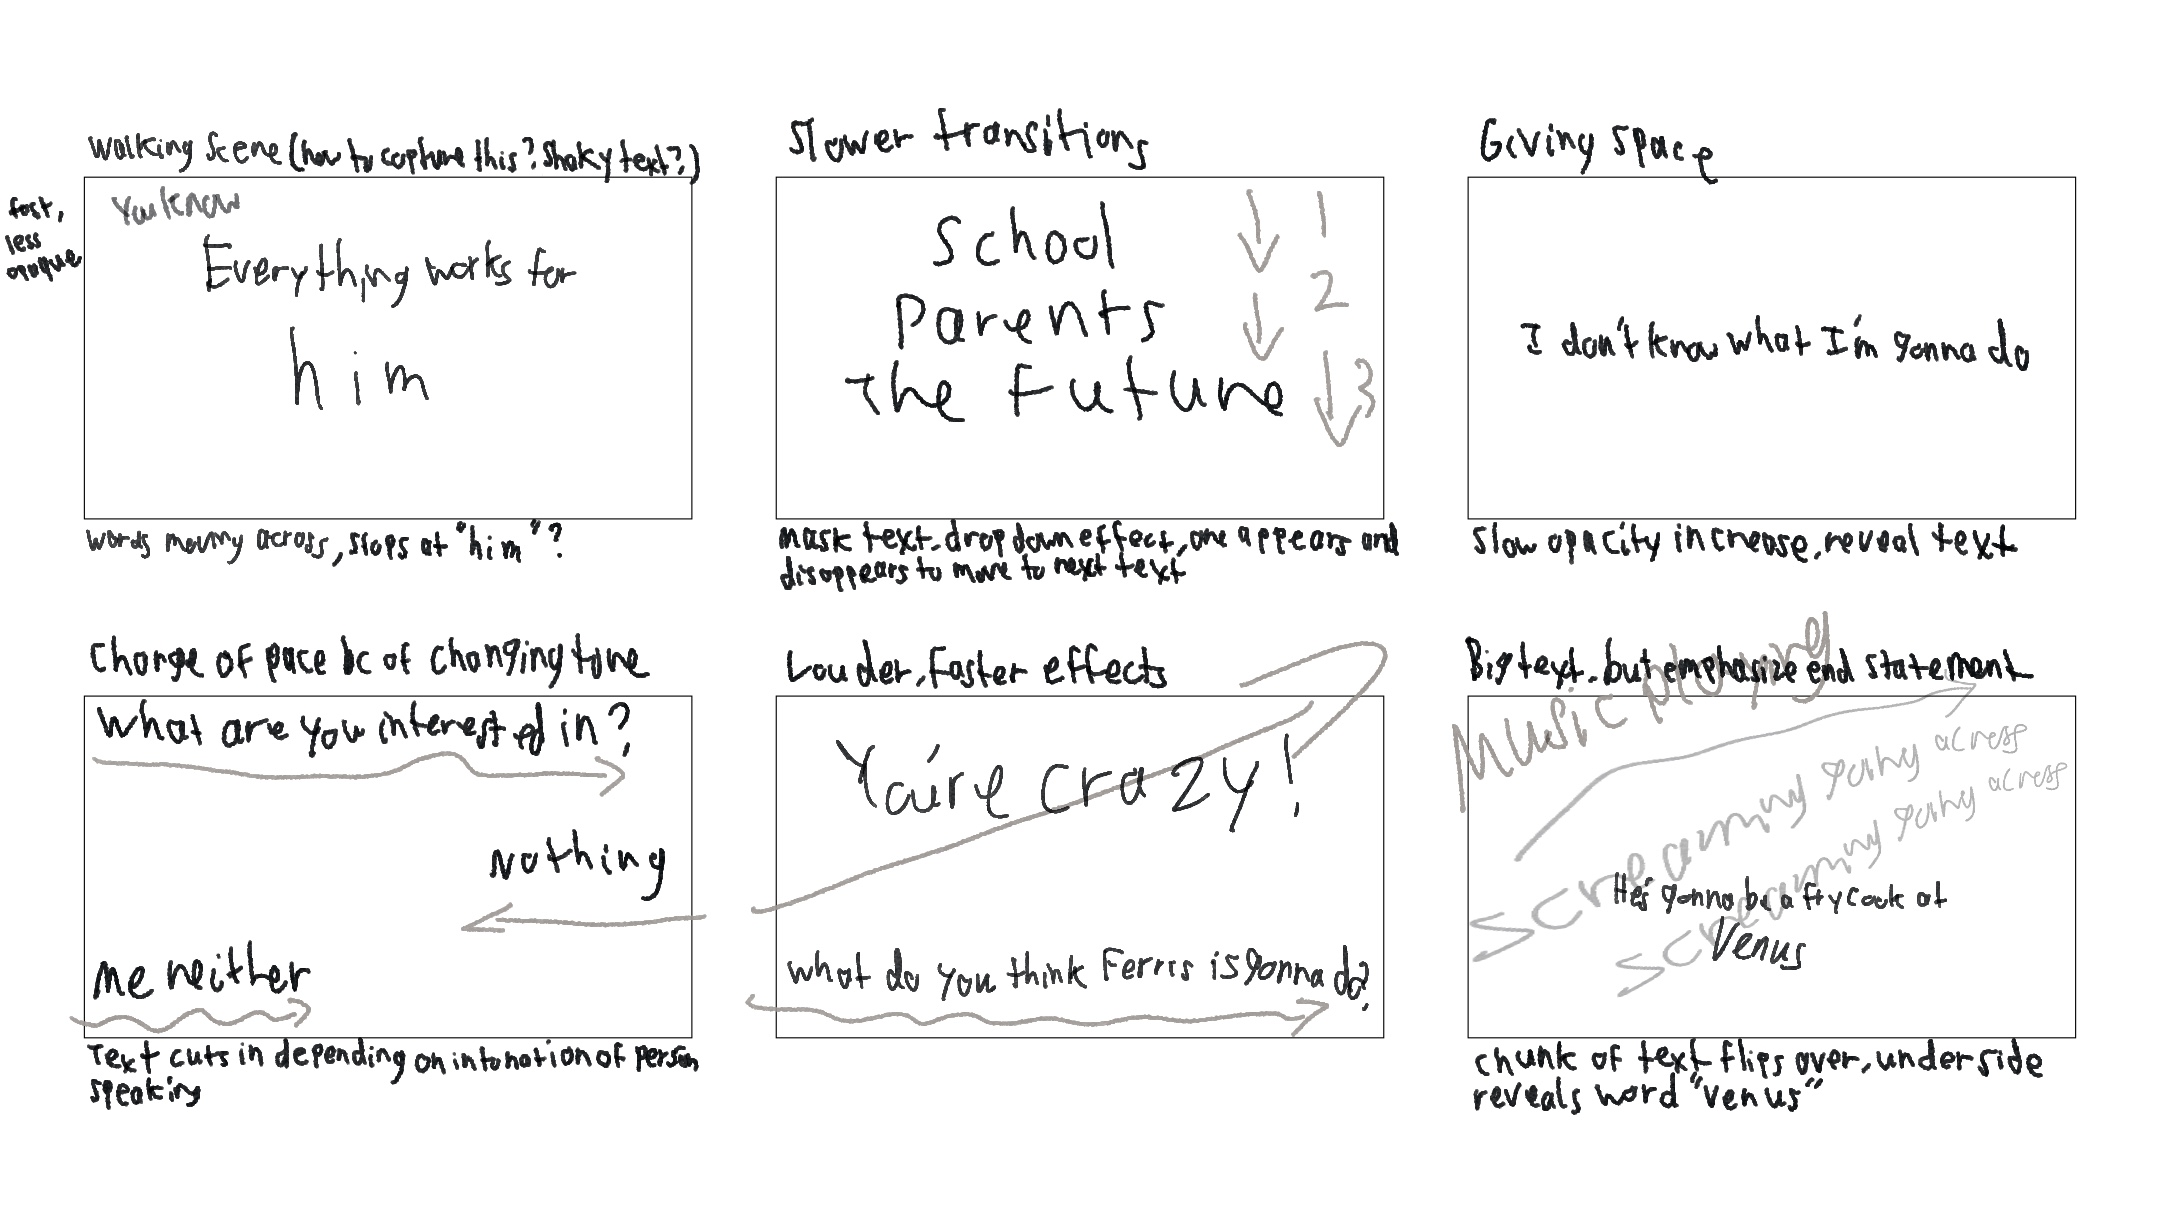 Walking scene (how to capture this? Shaky text?)
fast,
less
opaque
You know
Everything works for
him
words moving across, stops at "him"?
Slower transitions
School
Parents
the Future
1
2
3
mask text, drop down effect, one appears and
disappears to move to next text
Giving space
I don't know what I'm gonna do
slow opacity increase, reveal text
Change of pace bc of changing tone
What are you interested in?
Nothing
me neither
Text cuts in depending on intonation of person
speaking
Louder, Faster effects
You're crazy!
what do you think Ferris is gonna do?
Big text, but emphasize end statement
Music playing
Screaming going across
Screaming going across
He's gonna be a fry cook at
Venus
chunk of text flips over, underside
reveals word "venus"